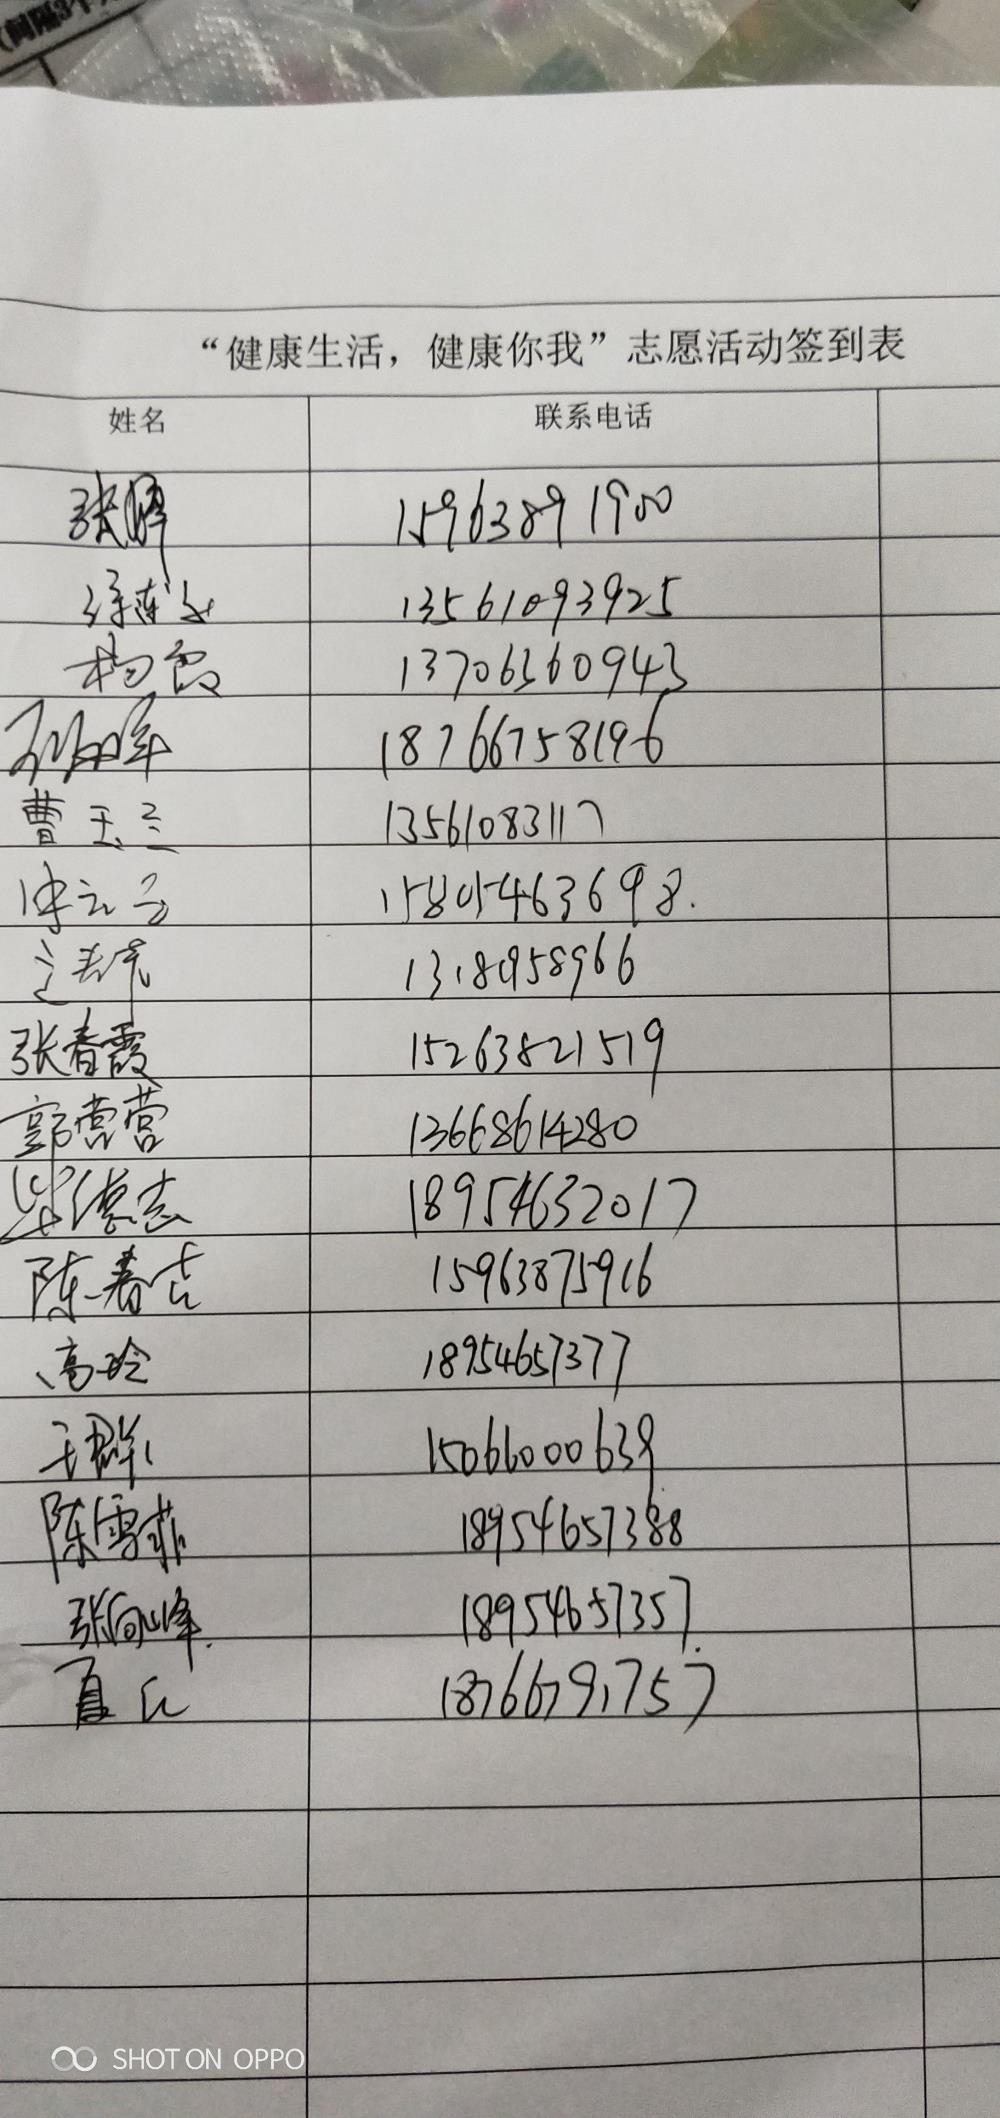 (间隔3个
“健康生活，健康你我”志愿活动签到表
姓名 联系电话
张晖 15963891900
13561093925
杨霞 13706360943
18766758196
曹玉兰 13561083117
15805463698.
13181958966
张春霞 15263821519
郭营营 13668614280
毕德志 18954632017
陈春吉 15963875916
高玲 18954657377
王群 15066000639
陈雪菲 18954657388
张向峰. 18954657357
夏 18766791757
SHOT ON OPPO